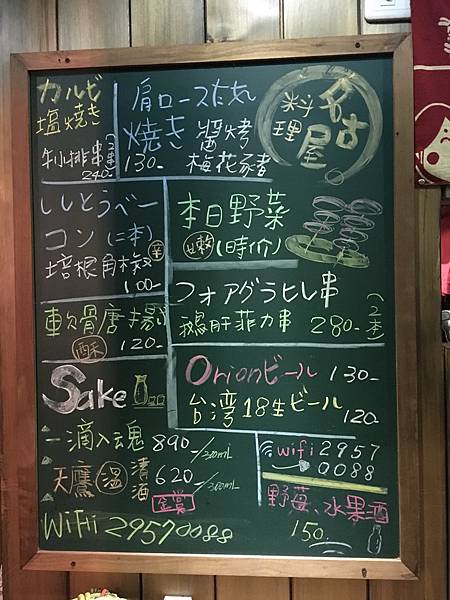 カルビ
塩焼き
牛小排串(2串)
240-
肩ロースたれ
焼き 醬烤
130- 梅花豬
名古屋
料理
ししとうベー
コン(二本)
培根角椒 辛
100-
本日野菜
(時价)
フォアグラヒレ串
鵝肝菲力串 280- (2本)
軟骨唐揚
酥 120-
Orionビール 130-
台湾18生ビール
120-
Sake
一滴入魂 890-/720ml
天鷹 溫 清酒 620-/360ml
金賞
wifi 2957
0088
野莓、水果酒
150.
WiFii 29570088